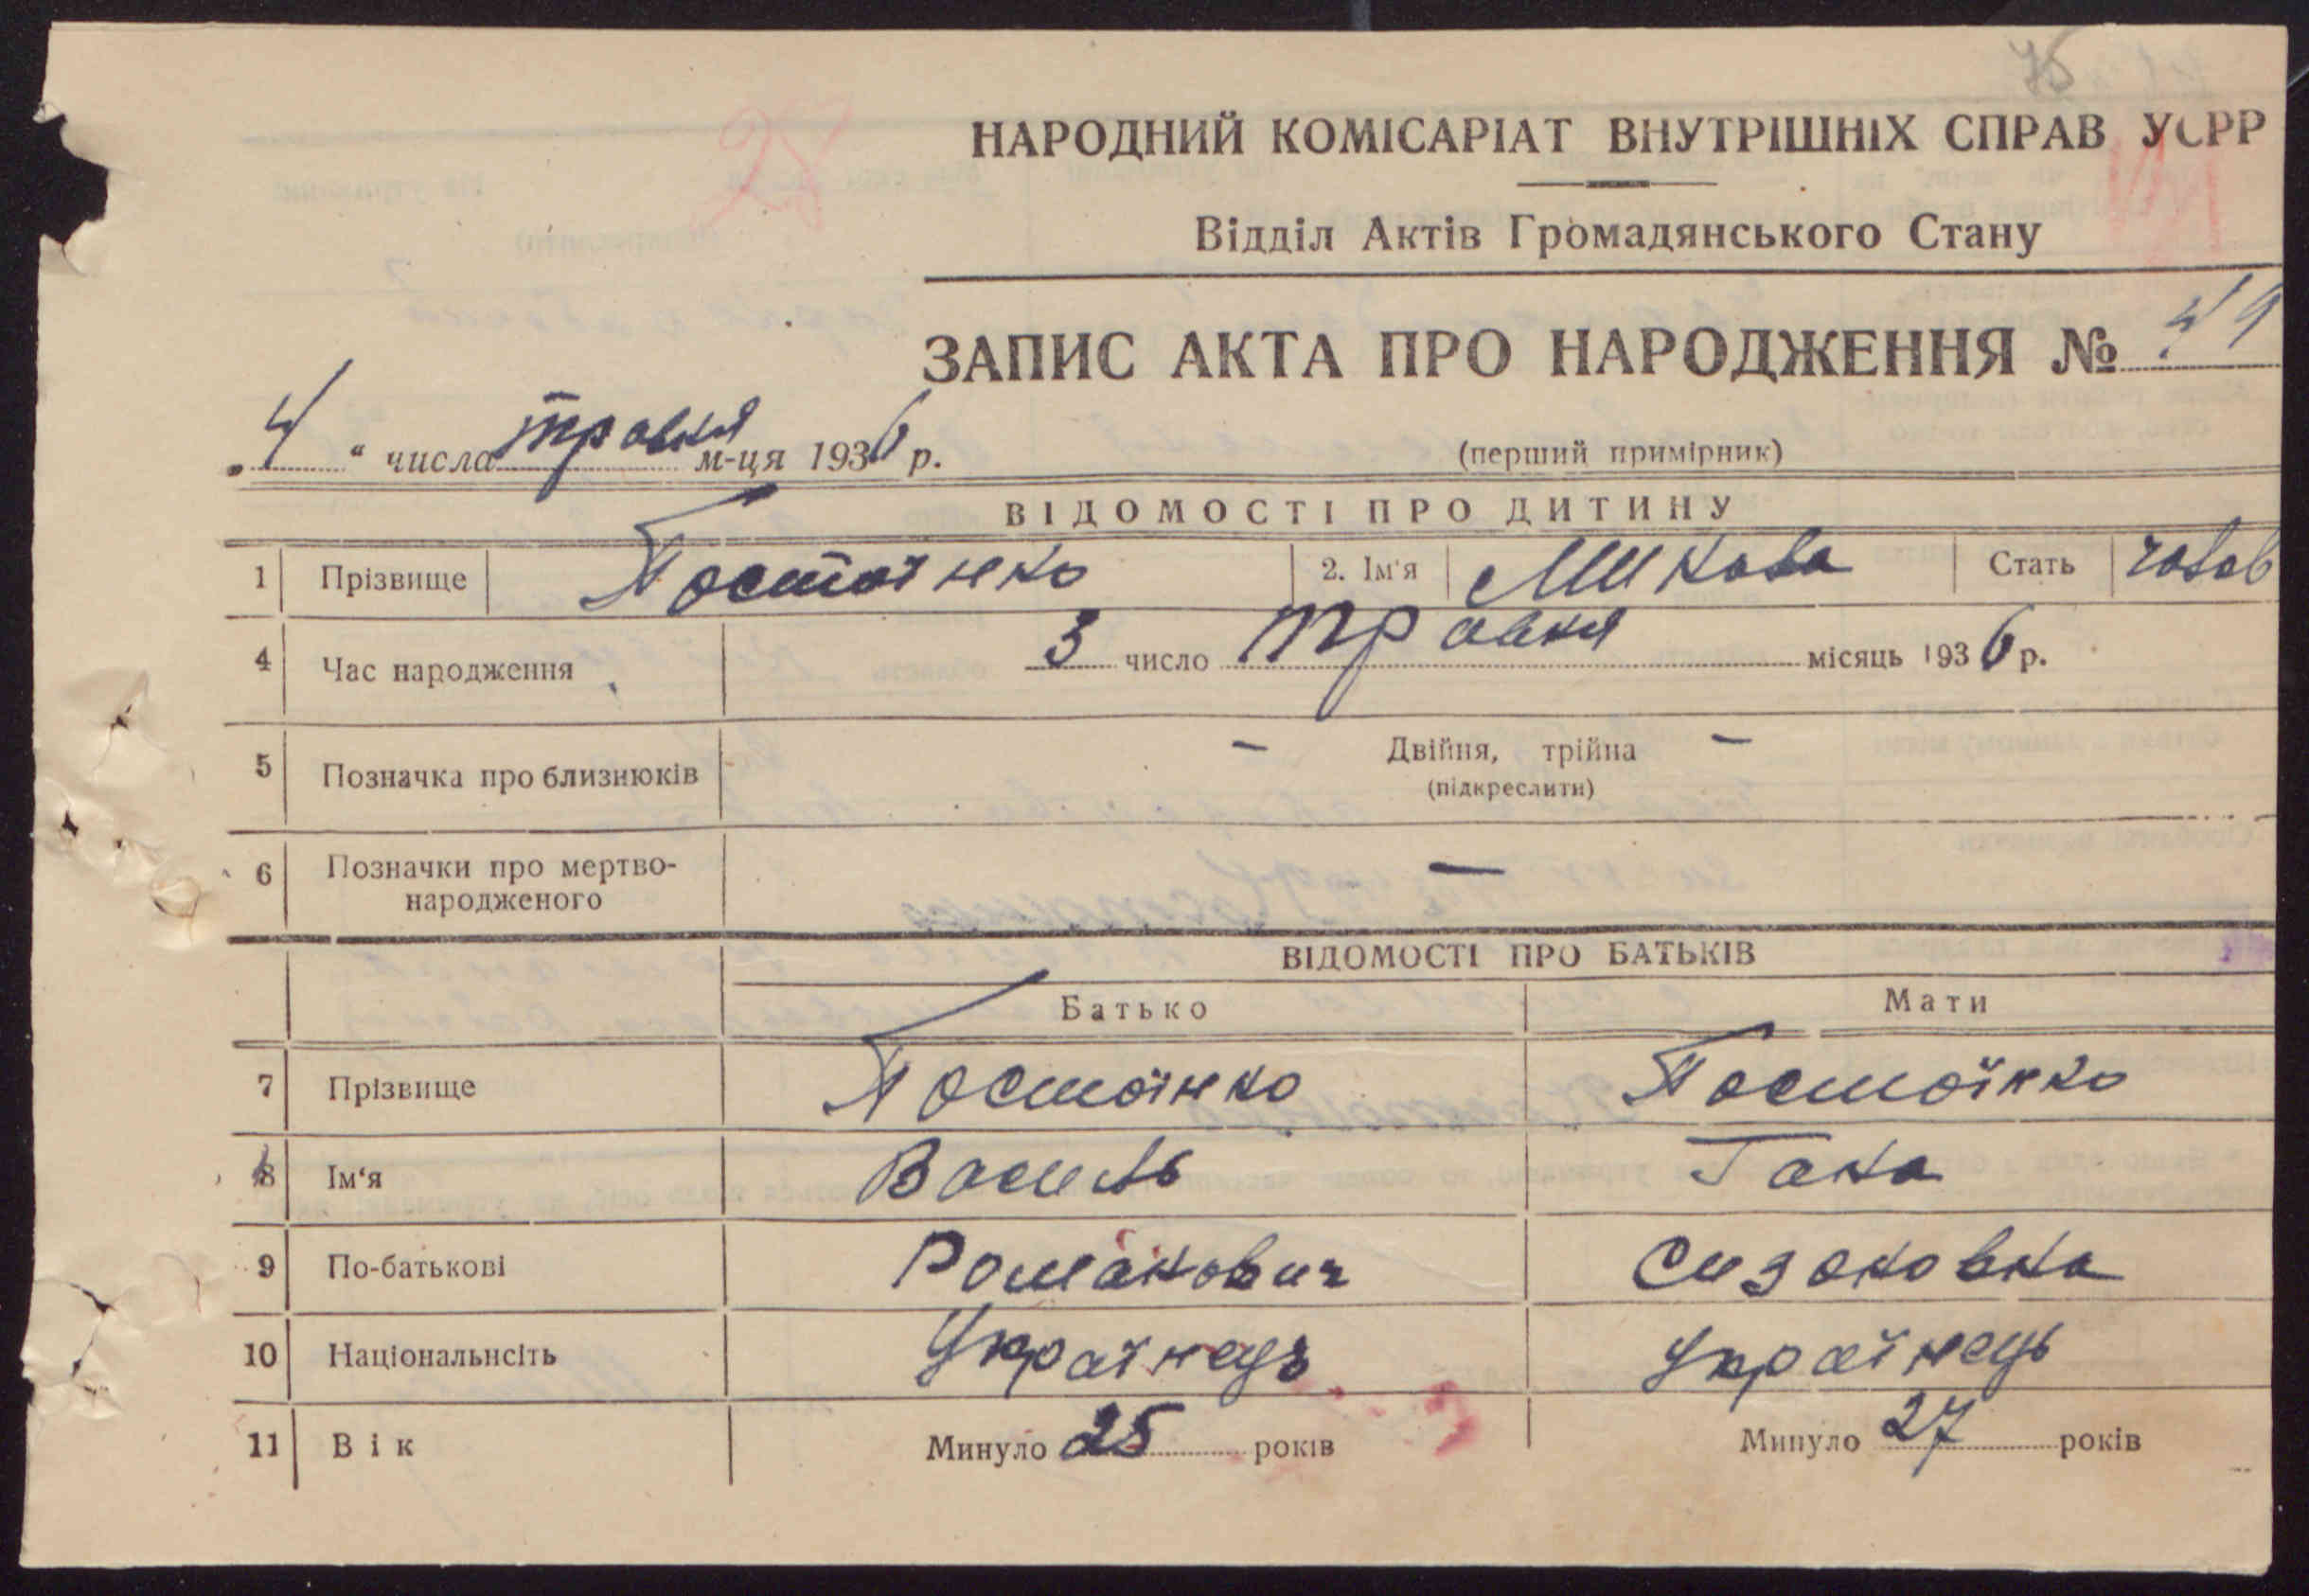 75
НАРОДНИЙ КОМІСАРІАТ ВНУТРІШНІХ СПРАВ УСРР
Відділ Актів Громадянського Стану
ЗАПИС АКТА ПРО НАРОДЖЕННЯ №
„4“ числа травня м-ця 1936 р.
(перший примірник)
ВІДОМОСТІ ПРО ДИТИНУ
1 Прізвище Постоїнко 2. Ім'я Микола Стать чолов
4 Час народження 3 число травня місяць 1936 р.
5 Позначка про близнюків – Двійня, трійна –
(підкреслити)
6 Позначки про мертво-
народженого —
ВІДОМОСТІ ПРО БАТЬКІВ
Батько Мати
7 Прізвище Постоїнко Постоїнко
8 Ім‘я Василь Гана
9 По-батькові Романович Сизоновна
10 Національнсіть Українець Українець
11 Вік Минуло 25 років Минуло 27 років